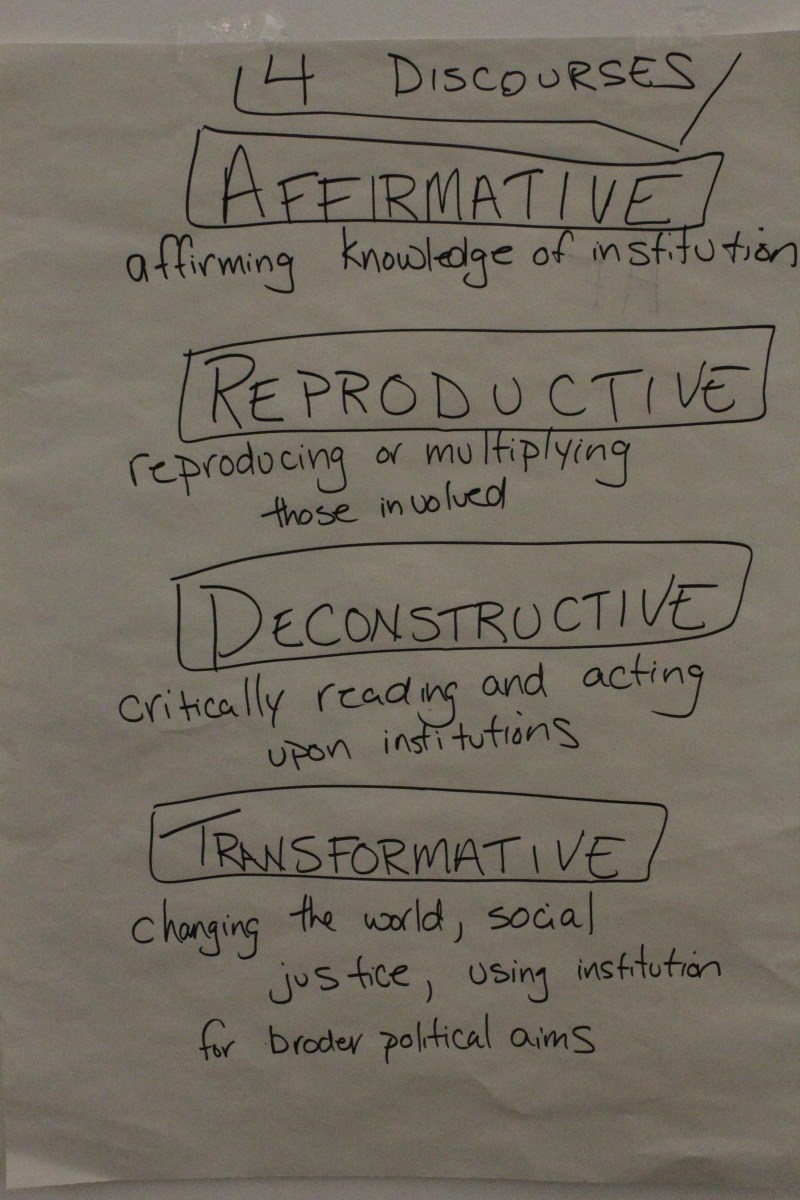 4 DISCOURSES
AFFIRMATIVE
affirming knowledge of institution
REPRODUCTIVE
reproducing or multiplying
those involved
DECONSTRUCTIVE
critically reading and acting
upon institutions
TRANSFORMATIVE
changing the world, social
justice, using institution
for broder political aims